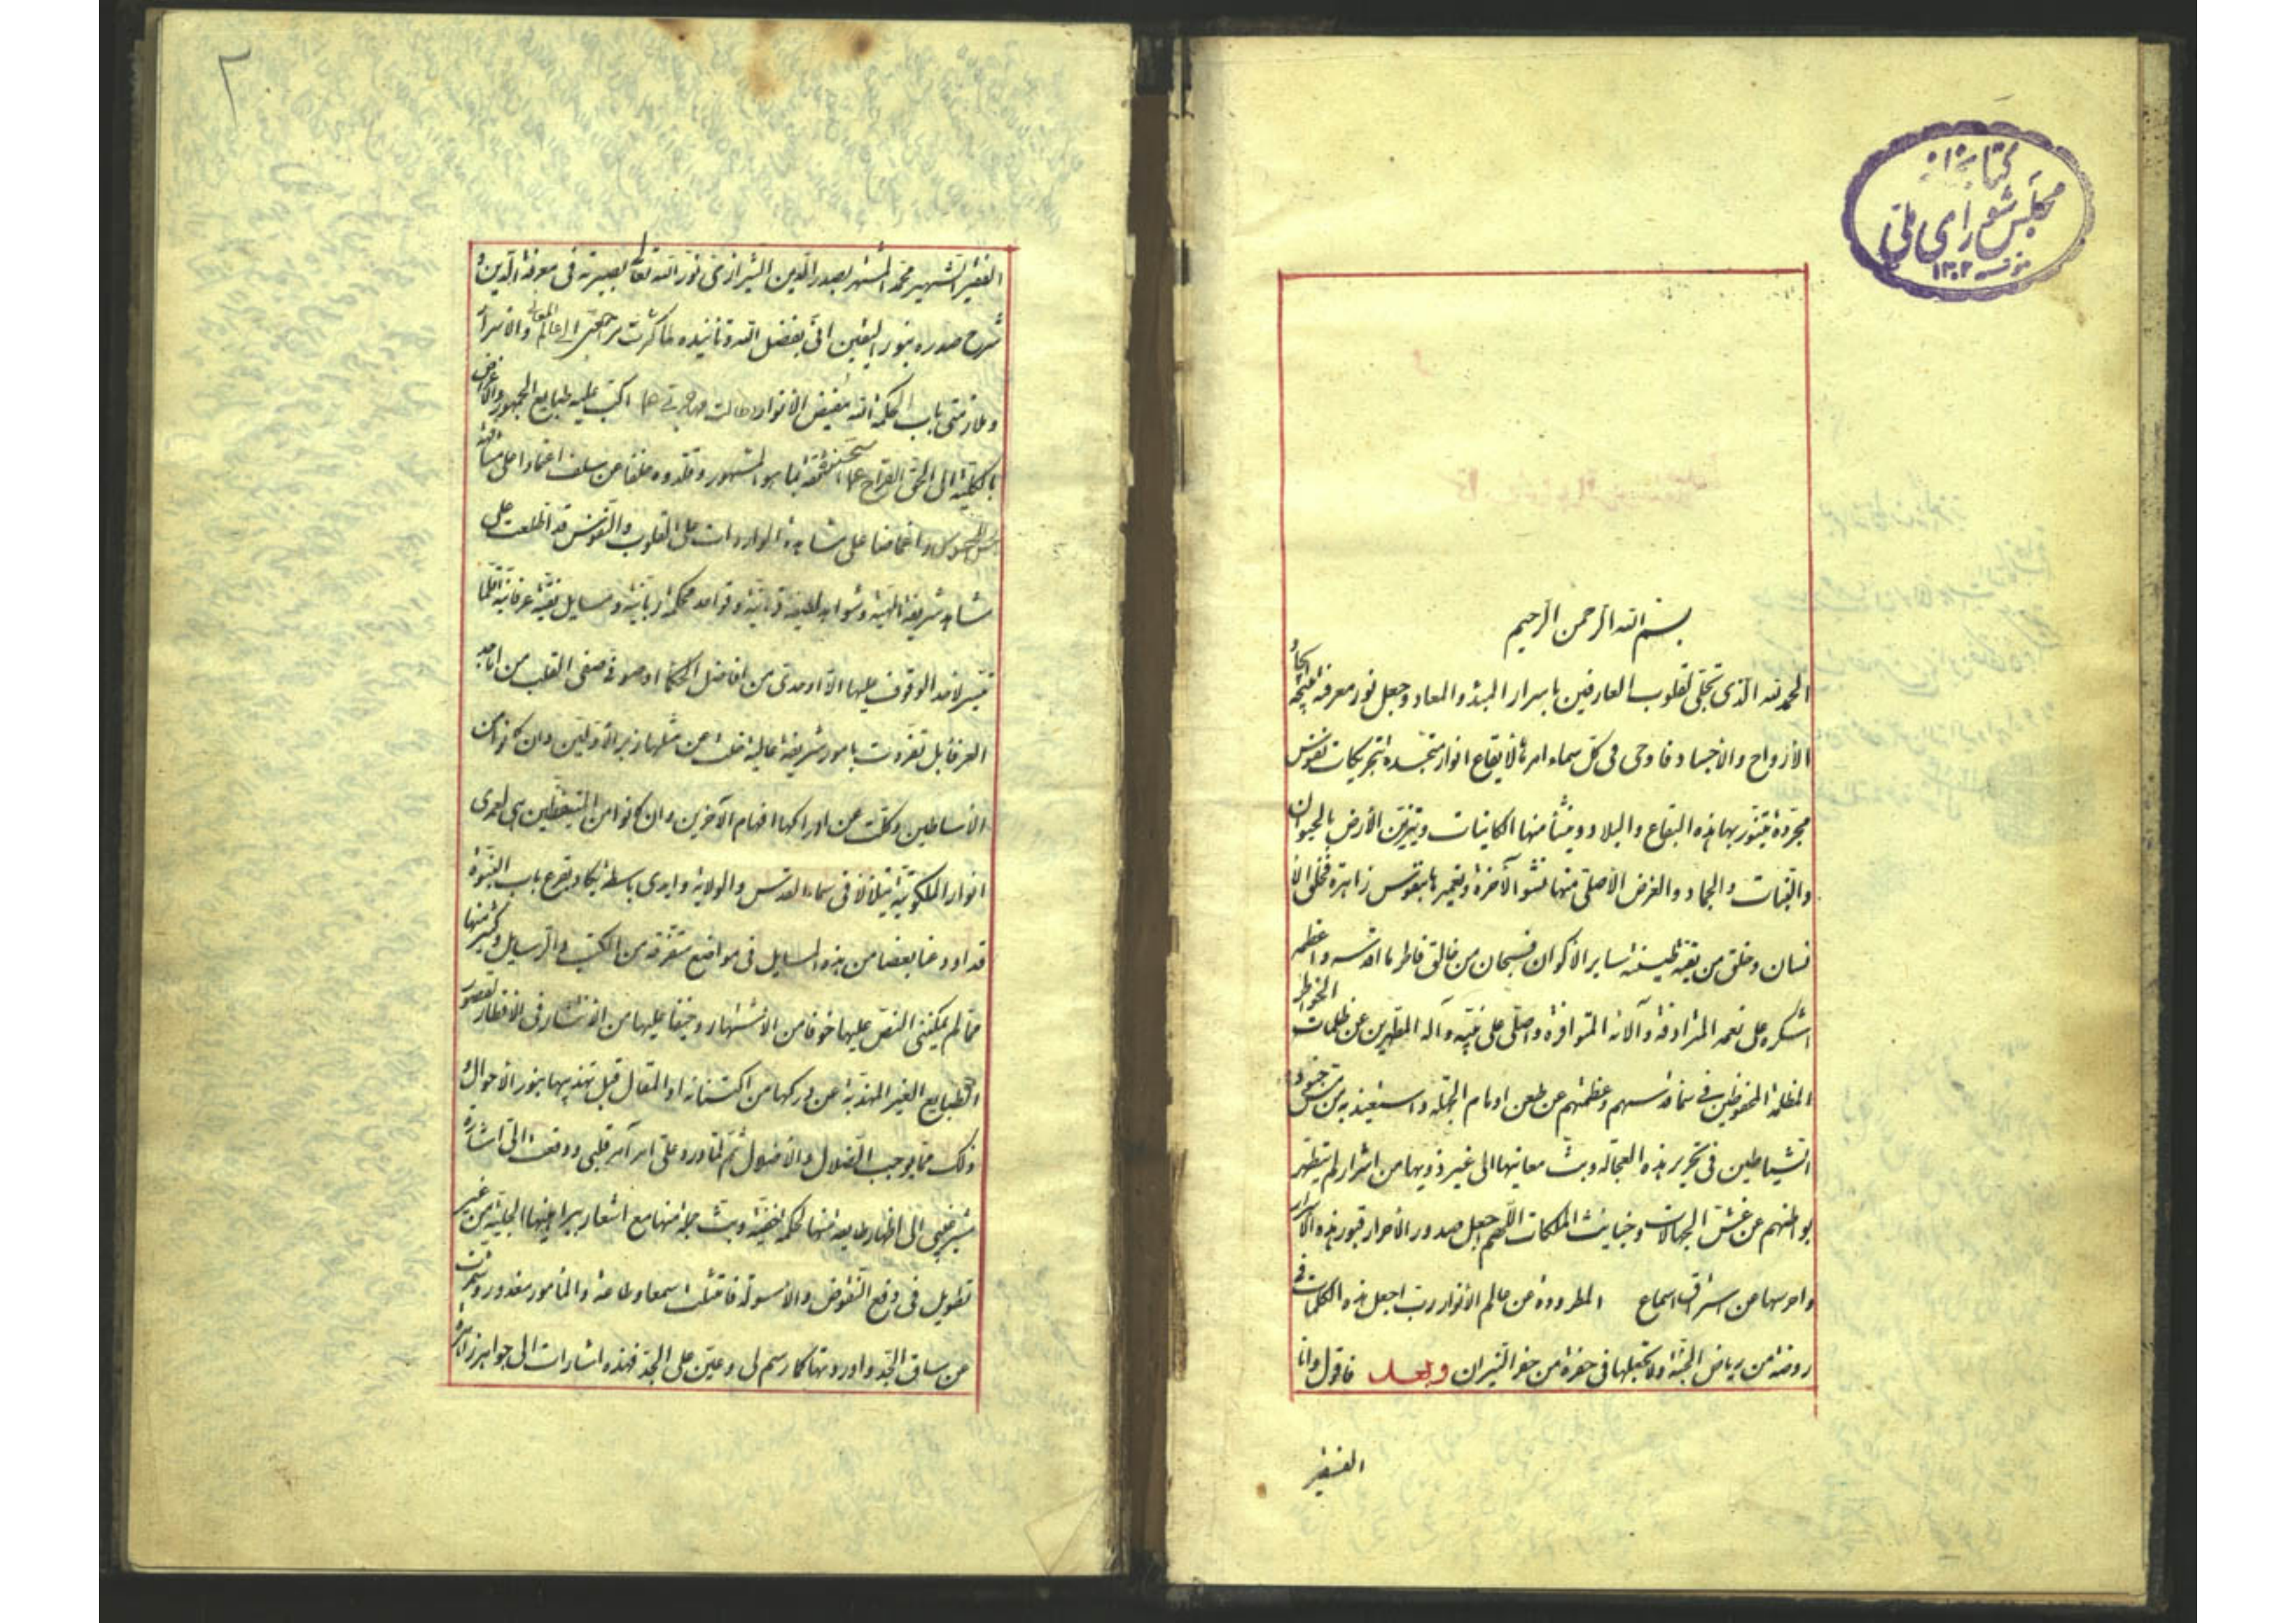 كتابخانه
مجلس شورای ملی
مؤسسه ١٣٠٢
بسم الله الرحمن الرحيم
الحمد لله الذي تجلى لقلوب العارفين باسرار المبدء والمعاد وجعل نور معرفته نتيجة ايجاد
الأرواح والأجساد فاوحى في كل سماء امرها لايقاع انوار متجددة بتحريكات نفوس
مجردة يتنور بها هذه البقاع والبلاد وينشأ منها الكائنات ويتزين الأرض بالحيوان
والنبات والجماد والغرض الأصلي منها نشو الآخرة وتعميرها بنفوس زاهرة فخلق الا
نسان وخلق من بقية طينته ساير الاكوان فسبحان من خالق فاطر ما اقدسه واعظمه
اشكره على نعمه المترادفة وآلائه المتوافرة واصلي على نبيه وآله المطهرين عن ظلمات الخواطر
المظلمة المحفوظين في سماء قدسهم وعظمتهم عن طعن اوهام الجهلة واستعيذ به من مس جنود
الشياطين في تحرير هذه العجالة وبث معانيها الى غير ذويها من اشرار لم يتطهر
بواطنهم عن غش الجهالات وخبائث الملكات اللهم اجعل صدور الأحرار قبور هذه الاسرار
واحرسها عن استراق اسماع المطرودة عن عالم الأنوار رب اجعل هذه الكلمات في
روضة من رياض الجنة ولا تجعلها في حفرة من حفر النيران وبعد فاقول وانا
الفقير
٢
الفقير الشهير محمد المشتهر بصدر الدين الشيرازي نور الله تعالى بصيرته في معرفة الدين و
شرح صدره بنور اليقين انى بفضل الله وتأييده لما كثرت مراجعتي الى عالم المعاني والاسرار
وملازمتي باب الحكمة الله مفيض الانوار وطالت مهاجرتي عما اكب عليه طبايع الجمهور والاعراض
بالكلية الى الحق القراح عما استحسنه ثقة بما هو المشهور وقلدوه خلفا عن سلف اعتمادا على مشافهة
المحسوس واغماضا على مشاهدة الواردات على القلوب والنفوس قد اطلعت على
مشاهد شريفة الهية وشواهد لطيفة قرآنية وقواعد محكمة ربانية ومسايل نقية عرفانية قلما
تيسر لاحد الوقوف عليها الا اوحدي من افاضل الحكماء او صوفي صفي القلب من اماجد
العرفا بل تفردت بامور شريفة عالية خلت عن مثلها زبر الأولين وان كانوا من
الأساطين وكلت عن ادراكها افهام الآخرين وان كانوا من المتيقظين هى لعمرى
انوار الملكوتية يتلألأ في سماء القدس والولاية وايدى باسطة يكاد يقرع باب النبوة
قد اودعنا بعضا من هذه المسايل في مواضع متفرقة من الكتب والرسايل وكثير منها
مما لم يمكنني النص عليها خوفا من الاشتهار وحيفا عليها من الانتشار في الاقطار لقصور
الطبايع الغير المهذبة عن دركها من اكتسابه او المقال قبل تهذيبها بنور الأحوال و
ذلك مما يوجب الضلال والاضلال ثم لما ورد على امر آمر قلبي ووقعت الى اشارة
مشير غيبي الى اظهار طايفة منها لحكمة خفية وبث جملة منها مع اشعار ببراهينها الجلية من غير
تطويل في دفع النقوض والاسولة فامتثلت سمعا وطاعة والمأمور معذور وشمرت
عن ساق الجد واوردتها كما رسم لى وعين على الجد فهذه اشارات الى جواهر زاهرة